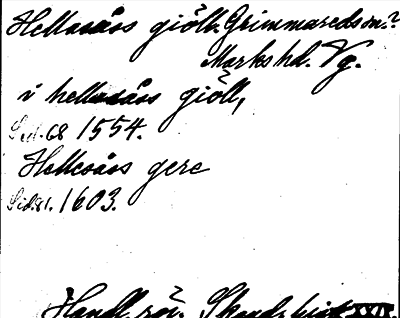 Hellesåos giöll. Grimmareds sn.?
Marks hd. Vg.
i hellesåos giöll,
Sid. 68 1554.
Hellesåos gere
Sid. 81. 1603.
Handl. rör. Skand. hist. XXIX.